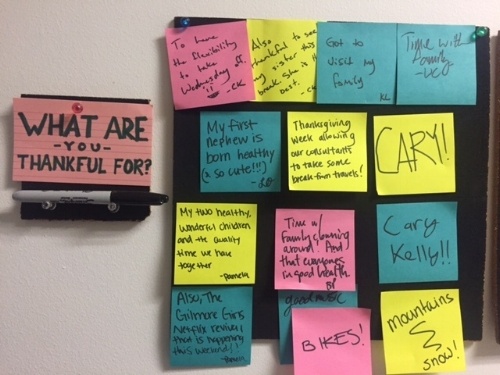 WHAT ARE
-YOU-
THANKFUL FOR?
To have
the flexibility
to take
Wednesday off.
-CK
Also
thankful to see
my sister this
break she is the
best. -CK
Got to
visit my
family
KL
Time with
family
My first
nephew is
born healthy
(& so cute!!!)
Thanksgiving
week allowing
our consultants
to take some
break-fun travels!
CARY!
My two healthy,
wonderful children
and the quality
time we have
together
-Pamela
Time w/
family clowning
around. And
that everyone's
in good health
good music
Cary
Kelly!!
Also, The
Gilmore Girls
Netflix revival
that is happening
this weekend!
-Pamela
BIKES!
mountains
snow!